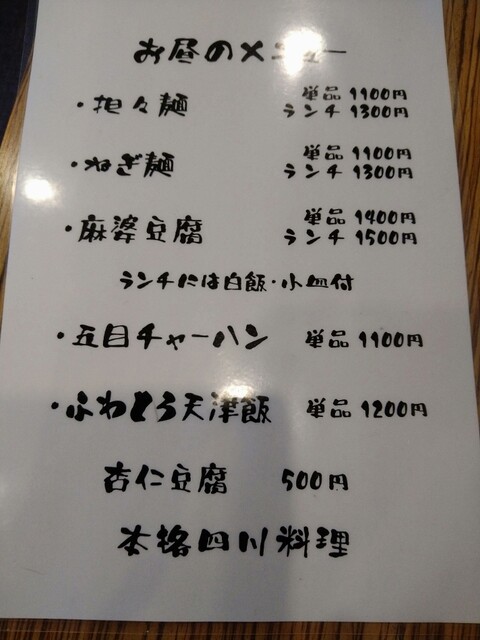 お昼のメニュー
・担々麺 単品 1100円
ランチ 1300円
・ねぎ麺 単品 1100円
ランチ 1300円
・麻婆豆腐 単品 1400円
ランチ 1500円
ランチには白飯・小皿付
・五目チャーハン 単品 1100円
・ふわとろ天津飯 単品 1200円
杏仁豆腐 500円
本格四川料理